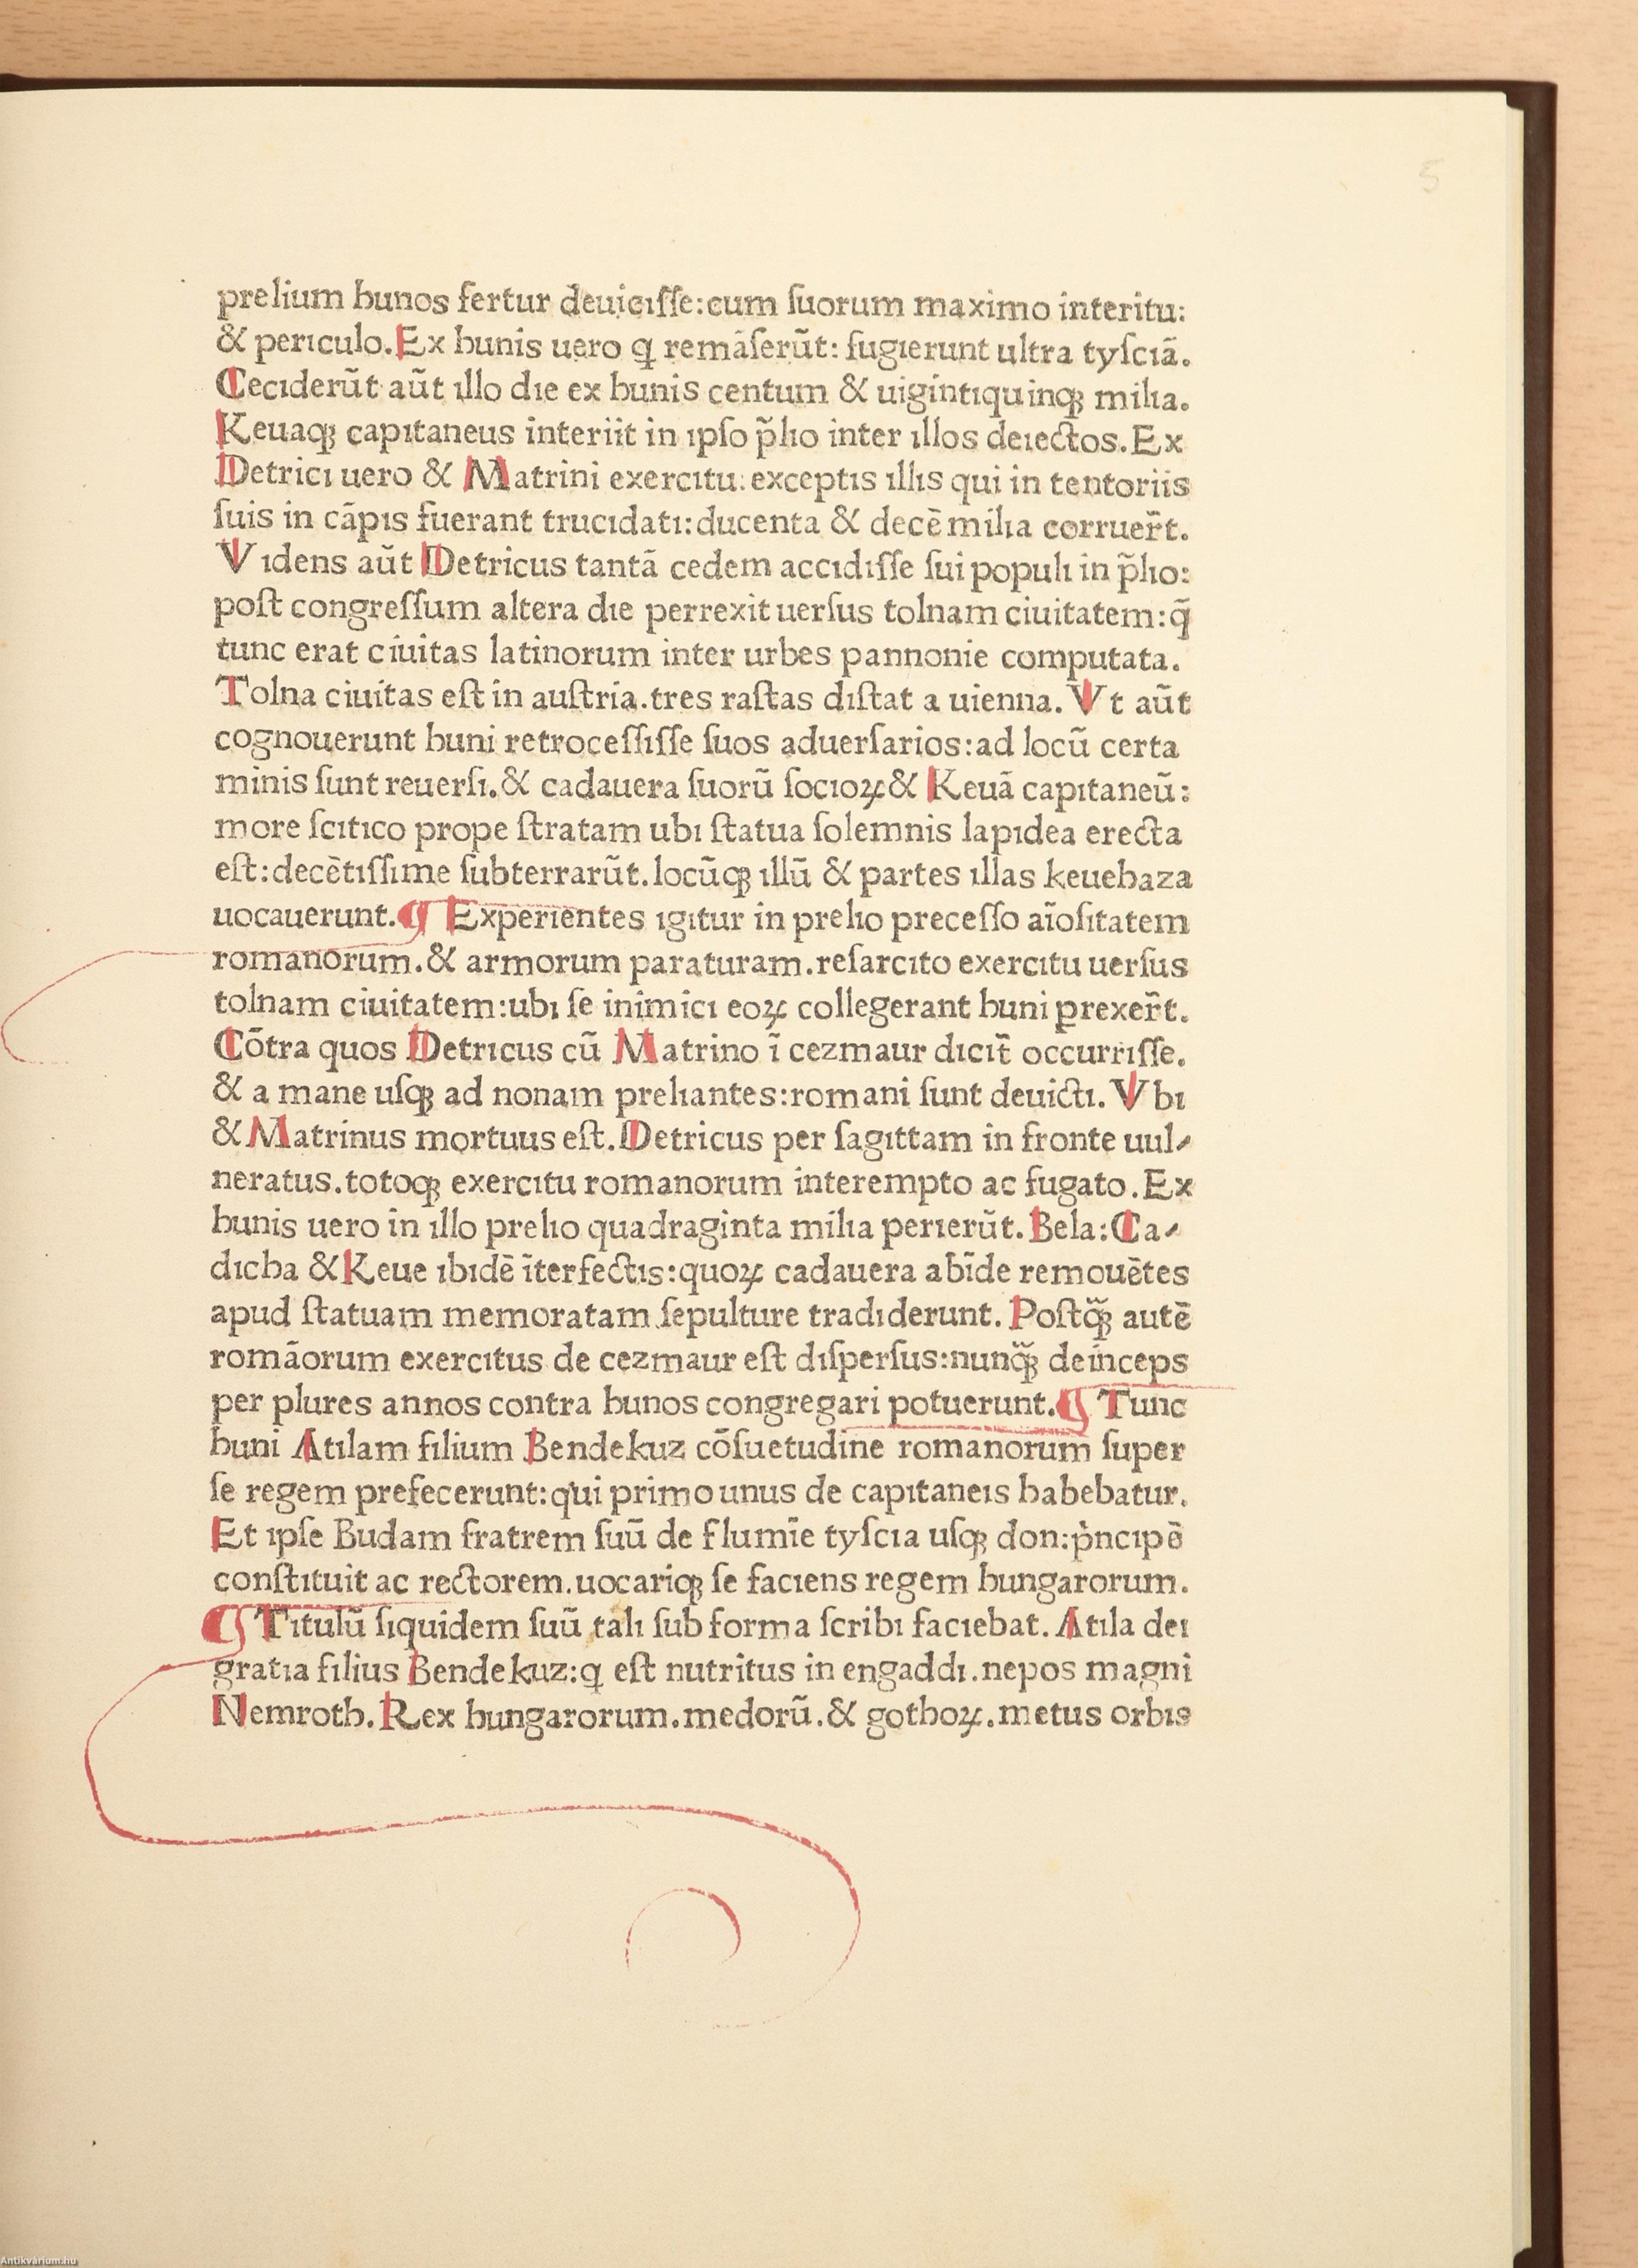 5
prelium hunos fertur deuiciſſe:cum ſuorum maximo interitu:
& periculo.Ex hunis uero ꝗ remãſerũt: fugierunt ultra tyſciã.
Ceciderũt aũt illo die ex hunis centum & uigintiquinqꝫ milia.
Keuaqꝫ capitaneus interiit in ipſo p̃lio inter illos deiectos.Ex
Detrici uero & Matrini exercitu: exceptis illis qui in tentoriis
ſuis in cãpis fuerant trucidati:ducenta & decẽ milia corruer̃t.
Videns aũt Detricus tantã cedem accidiſſe ſui populi in p̃lio:
poſt congreſſum altera die perrexit uerſus tolnam ciuitatem:q̃
tunc erat ciuitas latinorum inter urbes pannonie computata.
Tolna ciuitas eſt in auſtria.tres raſtas diſtat a uienna. Vt aũt
cognouerunt huni retroceſſiſſe ſuos aduerſarios:ad locũ certa
minis ſunt reuerſi.& cadauera ſuorũ ſocioꝝ & Keuã capitaneũ:
more ſcitico prope ſtratam ubi ſtatua ſolemnis lapidea erecta
eſt:decẽtiſſime ſubterrarũt.locũqꝫ illũ & partes illas keuehaza
uocauerunt.¶ Experientes igitur in prelio preceſſo aĩoſitatem
romanorum.& armorum paraturam.reſarcito exercitu uerſus
tolnam ciuitatem:ubi ſe inimici eoꝝ collegerant huni ꝑrexer̃t.
Cõtra quos Detricus cũ Matrino ĩ cezmaur dicit̃ occurriſſe.
& a mane uſqꝫ ad nonam preliantes:romani ſunt deuicti. Vbi
& Matrinus mortuus eſt.Detricus per ſagittam in fronte uul⸗
neratus.totoqꝫ exercitu romanorum interempto ac fugato.Ex
hunis uero in illo prelio quadraginta milia perierũt.Bela:Ca⸗
dicha & Keue ibidẽ ĩterfectis:quoꝝ cadauera abĩde remouẽtes
apud ſtatuam memoratam ſepulture tradiderunt. Poſtq̃ꝫ autẽ
romãorum exercitus de cezmaur eſt diſperſus:nunq̃ꝫ deinceps
per plures annos contra hunos congregari potuerunt.¶ Tunc
huni Atilam filium Bendekuz cõſuetudine romanorum ſuper
ſe regem prefecerunt:qui primo unus de capitaneis habebatur.
Et ipſe Budam fratrem ſuũ de flumĩe tyſcia uſqꝫ don:pͥncipẽ
conſtituit ac rectorem.uocariqꝫ ſe faciens regem hungarorum.
¶ Titulũ ſiquidem ſuũ tali ſub forma ſcribi faciebat. Atila dei
gratia filius Bendekuz:ꝗ eſt nutritus in engaddi.nepos magni
Nemroth.Rex hungarorum.medorũ.& gothoꝝ.metus orbis
Antikvárium.hu